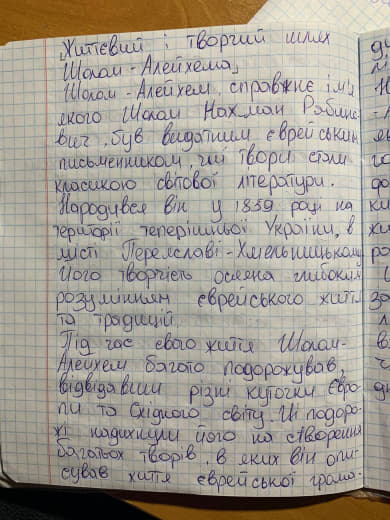 Життєвий і творчий шлях
Шолом-Алейхема,
Шолом-Алейхем, справжнє ім'я
якого Шолом Нохман Рабино-
вич, був видатним єврейським
письменником, чиї твори стали
класикою світової літератури.
Народився він у 1859 році на
території теперішньої України, в
місті Переяславі-Хмельницькому
Його творчість осяяна глибоким
розумінням єврейського життя
та традицій.
Під час свого життя Шолом-
Алейхем багато подорожував,
відвідавши різні куточки Євро-
пи та Східного світу. Ці подоро-
жі надихнули його на створення
багатьох творів, в яких він опи-
сував життя єврейської грома-